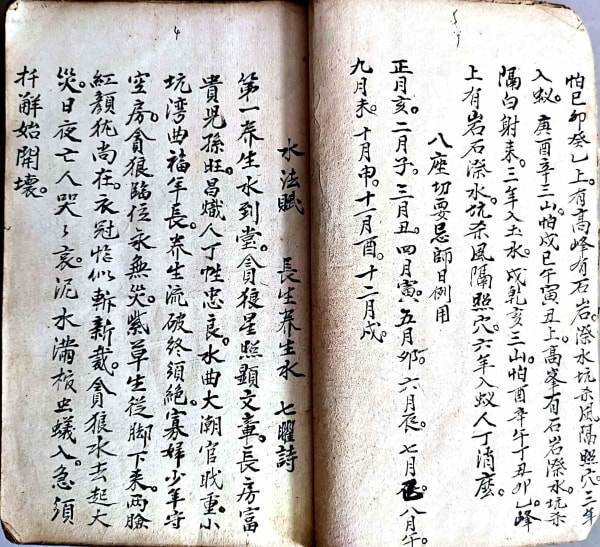 怕巳卯癸乙上有高峰有石岩。潀水坑杀風隔照穴。三年
入蚁。庚酉辛三山。怕戌巳午寅丑上。高峯有石岩潀水。坑杀
隔白射来。三年入土水。戌乾亥三山怕酉辛午丁丑卯乙峰
上有岩石潀水。坑杀風隔照穴。六年入蚁人丁消
八座切要忌師日例用
正月亥。二月子。三月丑。四月寅。五月卯。六月辰。七月巳。八月午。
九月未。十月申。十一月酉。十二月戌。
4
水法賦 長生养生水 七曜詩
第一养生水到堂。貪狼星照顕文章。長房富
貴児孫旺。昌熾人丁性忠良。水曲大潮官職重。小
坑湾曲福年長。养生流破終須絶。寡婦少年守
空房。貪狼臨位永無災。紫草生從脚下来。両臉
紅顔犹尚在。衣冠恰似斬新裁。貪狼水去起大
災。日夜亡人哭々哀。泥水满棺虫蟻入。急須
扦觧始開壊。